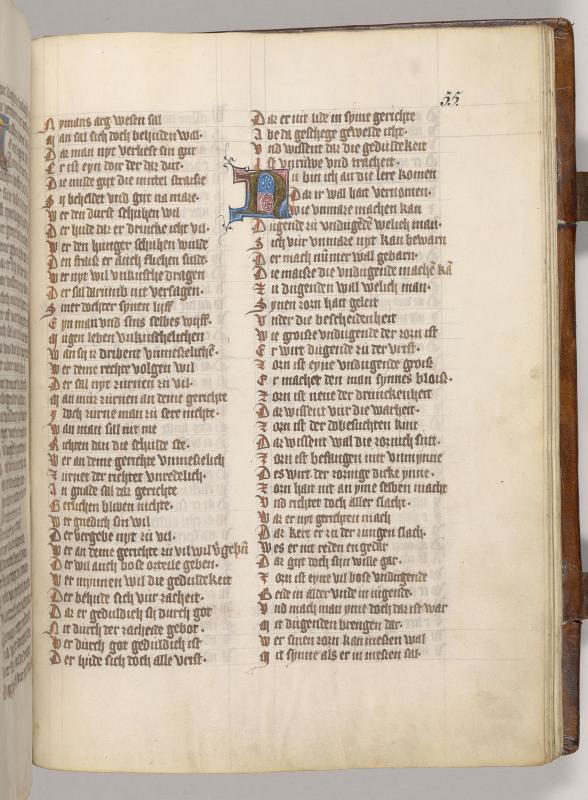 55
Nymans arg wesen sal
Man sal sich doch behuden wal·
Dar man nyt verliese sin gut
Er ist eyn doir der dar dut·
Die mitse gyt die mirkel straisse
Sy behelder vnd git na mare·
Wer den durst schuhen wil
Der hude dar er drincke icht vil·
Wer den hunger schuhen wulde
Den strais er auch fliehen sulde·
Wer nyt wil vnkusche dragen
Der sal darumb nit versagen·
Siner dochter synen lijff
Eyn man vnd sins selbes wyff·
Mugen leben vnkuschelichen
Wan sy is dribent vnmesseliche·
Wer deme rechte volgen wil
Der sal nyt zurnen zu vil·
Man muz zurnen an deme gerichte
y doch zurne man zu sere nichte·
Wan man sal nit me
Richten dan die schulde ste·
Wer an deme gerichte vnmesselich
Zurnet der richter vnredelich·
In gnade sal daz gerichte
Gerlichen bliben nichte·
Wer gnedich sin wil
Der vergebe nyt zu vil·
Wer an deme gerichte zu vil wil v'gebn
Der wil auch bose orteile geben·
Wer mynnen wil die geduldekeit
Der behude sich vur zacheit·
Dar er geduldich sy durch got
Nit durch der zacheide gebot·
Wer durch got geduldich ist
Der hude sich doch alle vrist·
Dar er nit lide in syme gerichte
Abe da geschege gewelde icht·
Vnd wissent dar die geduldekeit
Ist vnzuwe vnd tracheit·
Nu bin ich an die lere komen
Dar ir wal hait vernomen·
Wie vnmare machen kan
Dugende zu vndugede welich man·
Sich vur vnmare nyt kan bewarn
Der mach nummer wal gebarn·
Die maisse die vndugende mache ka
Zu dugenden wal welich man·
Synen zorn hait geleit
Vnder die bescheidenheit
Wie groisse vndugende der zorn ist
Er wirt dugende zu der vrist·
Zorn ist eyne vndugende grois
Er machet den man synnes blois·
Zorn ist neue der drunckenheit
Dar wissent vur die warheit·
Zorn ist der dobesuchten kint
Dar wissent wal die zornich sint·
Zorn ist befangen mit vnmynne
Des wirt der zornige dicke ynne·
Zorn hait nit an yme selben macht
Vnd richtet doch aller slacht·
War er nyt gerichten mach
Dar kere er zu der zungen slach·
Wes er nit reden en gedar
Dar gyt doch sin wille gar·
Zorn ist eyne vil bose vndugende
Beide in alder vnde in iugende·
Vnd mach man yme doch dar ist war
Mit dugenden brengen dar·
Wer sinen zorn kan messen wal
Mit synne als er in messen sal·